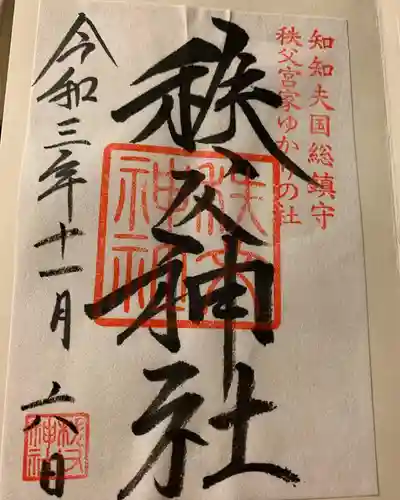 知知夫国総鎮守
秩父宮家ゆかりの社
秩父神社
秩父神社
令和三年十一月六日
秩父神社